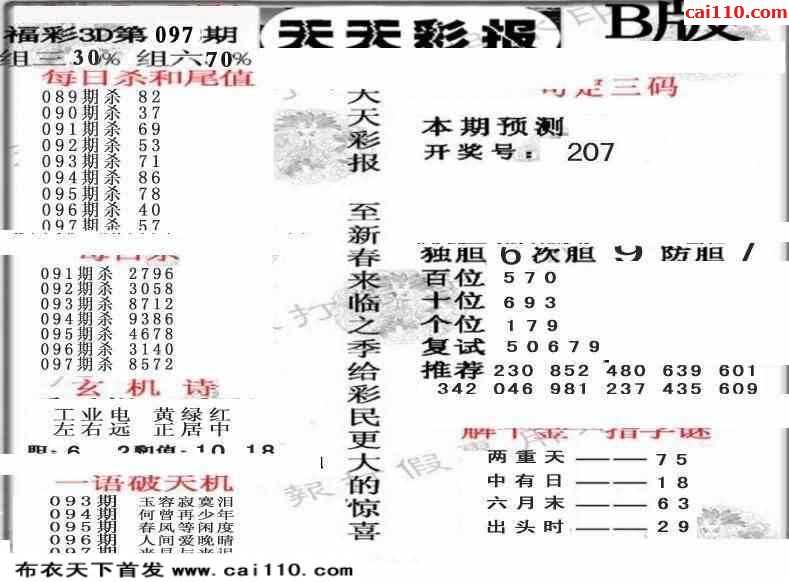 cai110.com
福彩3D第097期
天天彩报
B版
组三30% 组六70%
每日杀和尾值
089期杀 82
090期杀 37
091期杀 69
092期杀 53
093期杀 71
094期杀 86
095期杀 78
096期杀 40
097期杀 57
每日杀
091期杀 2796
092期杀 3058
093期杀 8712
094期杀 9386
095期杀 4678
096期杀 3140
097期杀 8572
玄机诗
工业电 黄绿红
左右远 正居中
胆: 6 2 和值: 10 18
一语破天机
093期 玉容寂寞泪
094期 何曾再少年
095期 春风等闲度
096期 人间爱晚晴
097期
天天彩报 至新春来临之季给彩民更大的惊喜
定三码
本期预测
开奖号: 207
独胆6次胆9防胆7
百位 570
十位 693
个位 179
复试 50679
推荐 230 852 480 639 601
342 046 981 237 435 609
解千金一指字谜
两重天——75
中有日——18
六月末——63
出头时——29
布衣天下首发 www.cai110.com